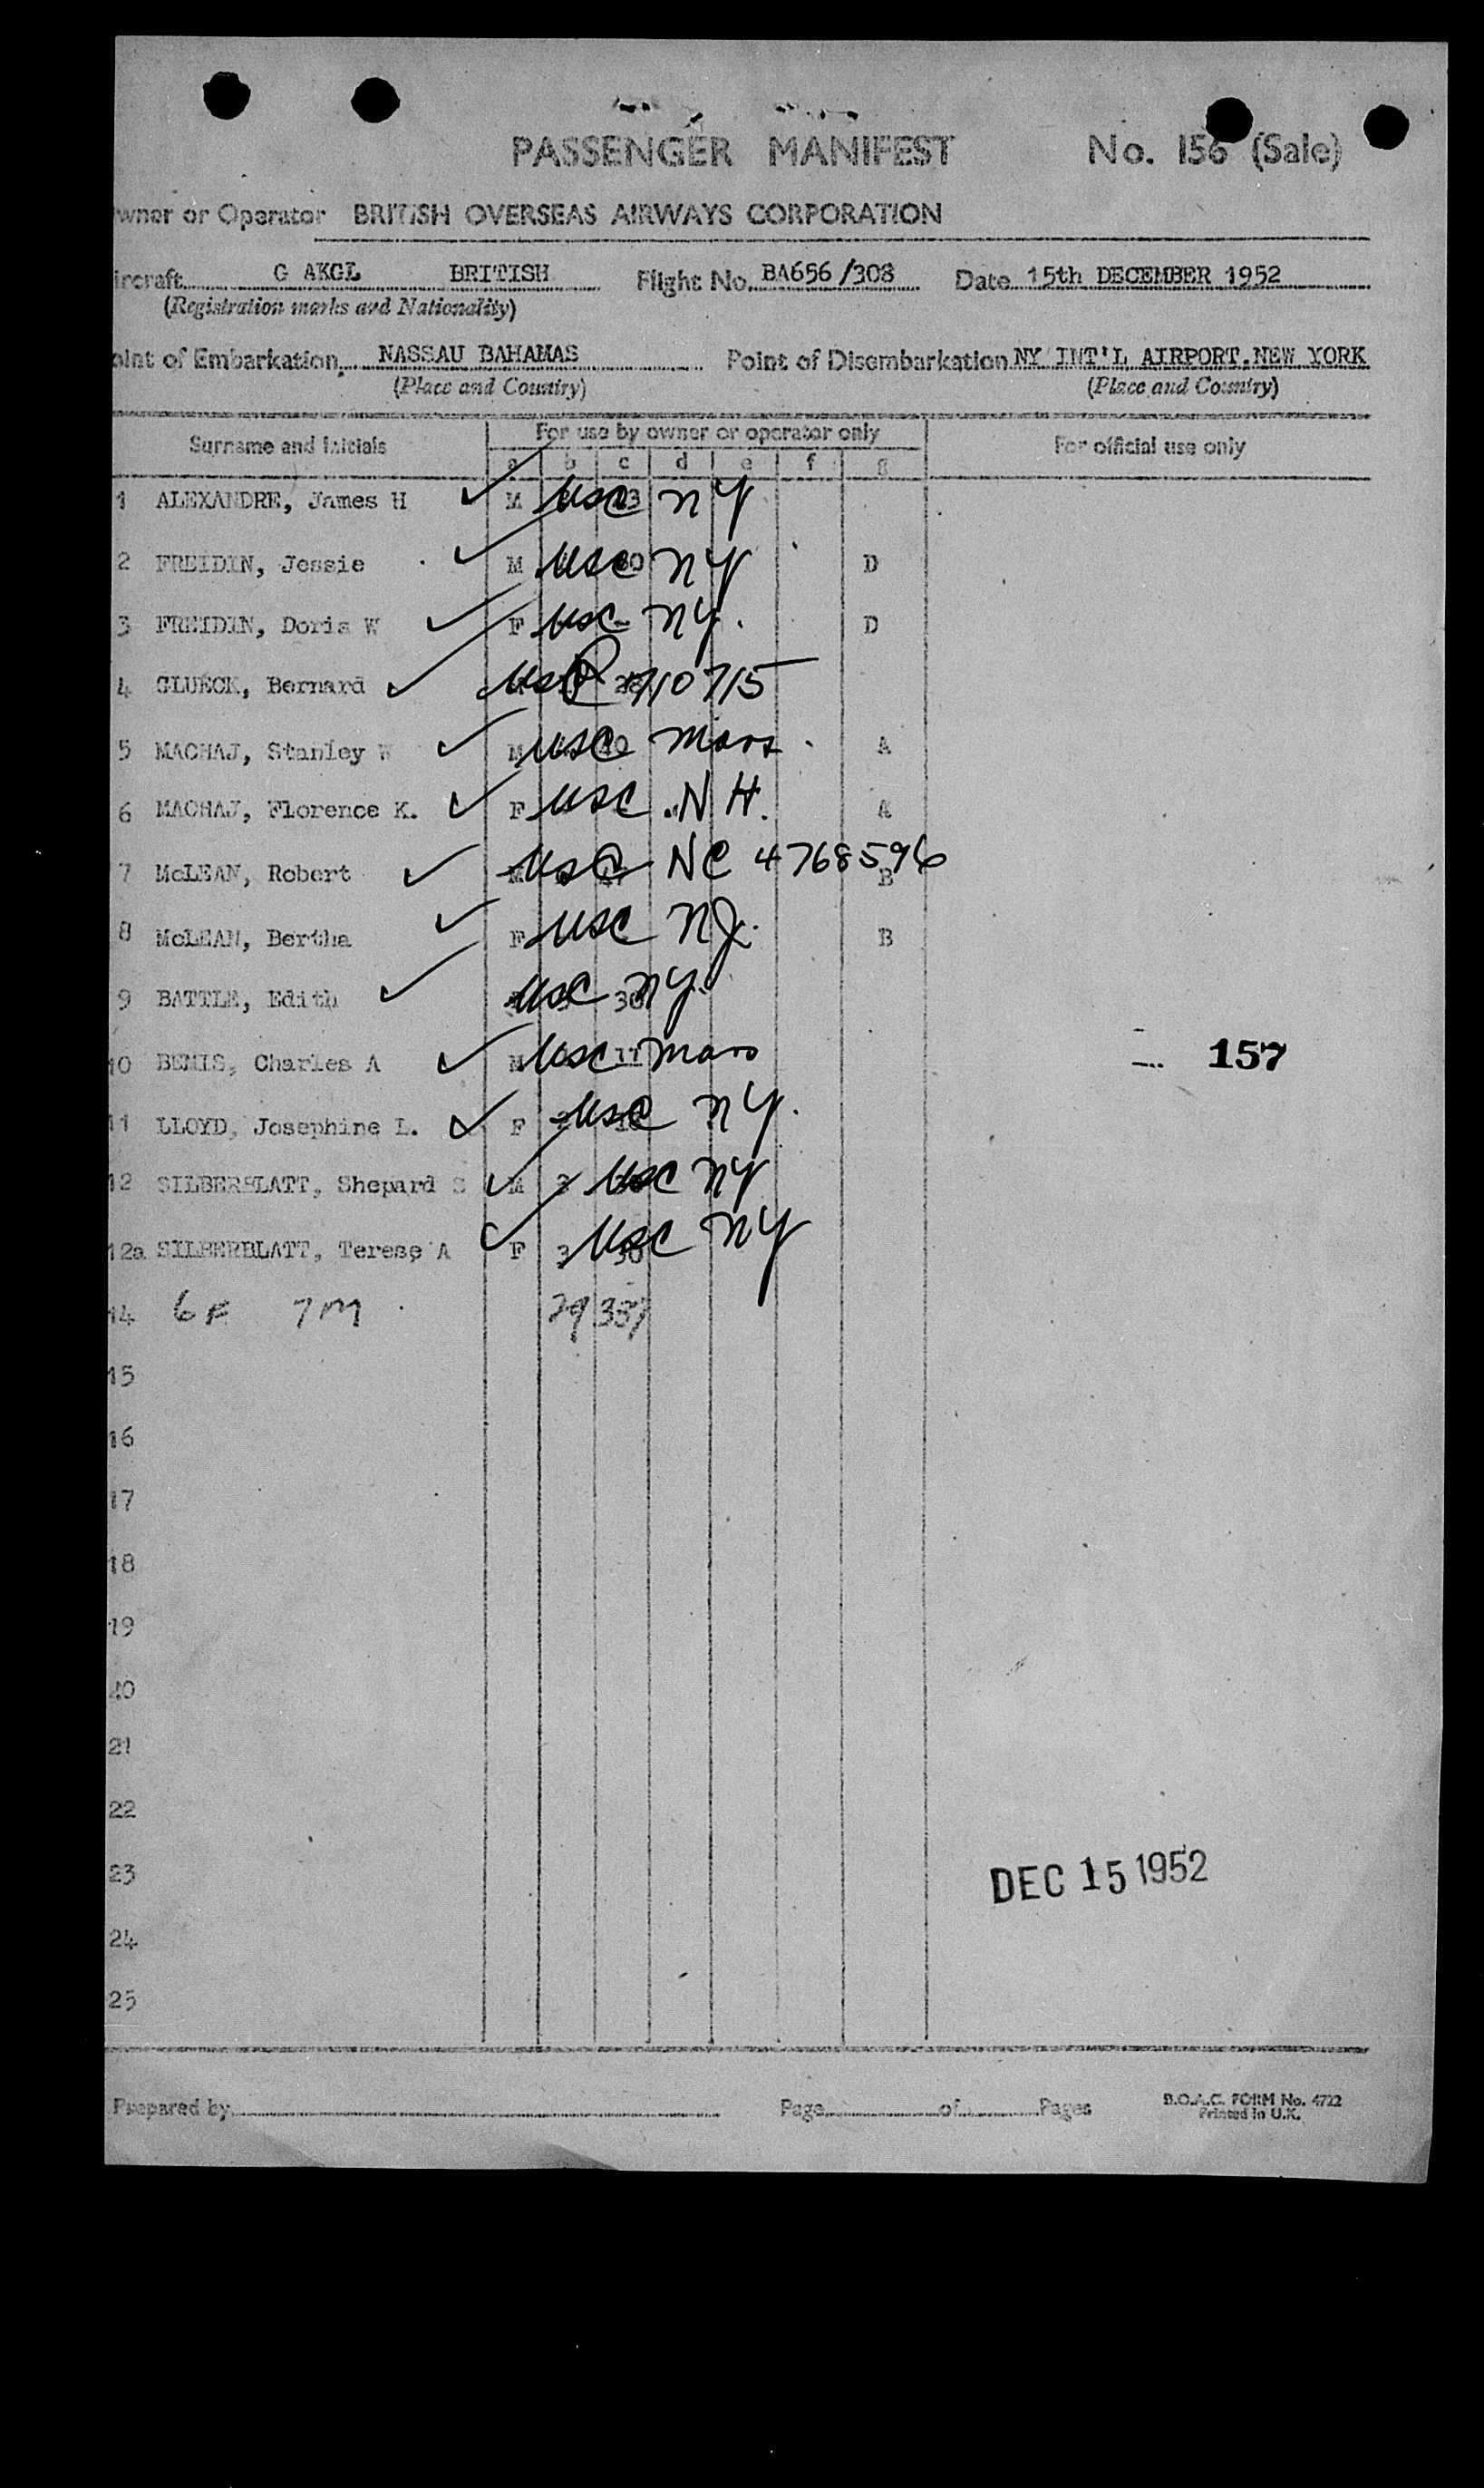 PASSENGER MANIFEST No. 156 (Sale)
wner or Operator BRITISH OVERSEAS AIRWAYS CORPORATION
ircraft G AKGL BRITISH Flight No. BA656/308 Date 15th DECEMBER 1952
(Registration marks and Nationality)
oint of Embarkation NASSAU BAHAMAS Point of Disembarkation NY INT'L AIRPORT.NEW YORK
(Place and Country) (Place and Country)
Surname and Initials For use by owner or operator only For official use only
a b c d e f g
1 ALEXANDRE, James H M USC NY
2 FREIDIN, Jessie M USC NY D
3 FREIDIN, Doris W F USC NY. D
4 GLUECK, Bernard 710715
5 MACHAJ, Stanley W M USC Mass. A
6 MACHAJ, Florence K. F USC N.H. A
7 McLEAN, Robert M USC NC 4768596 B
8 McLEAN, Bertha F USC NJ. B
9 BATTLE, Edith USC NY.
10 BEMIS, Charles A M USC Mass
157
11 LLOYD, Josephine L. F USC NY.
12 SILBERBLATT, Shepard S M USC NY
12a SILBERBLATT, Terese A F 3 USC NY
14 6F 7M
15
16
17
18
19
20
21
22
23
DEC 15 1952
24
25
Prepared by Page of Pages
B.O.A.C. FORM No. 4722
Printed in U.K.